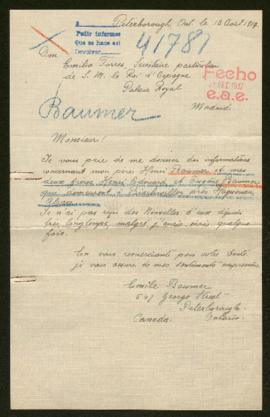 Peterborough, Ont. le 13 Août 1917.
Pedir informes
que se hace así
41781
Don
Emilio Torres, Secrétaire particulier
de S. M. le Roi d'Espagne
Palais Royal
Madrid.
Fecho
1917
e.a.e.
Baumer
Monsieur!
Je vous prie de me donner des informations
concernant mon père Henri Baumer et mes
deux frères Henri Edouard et Eugène Baumer
que demeurent à près
Alsace.
Je n'ai pas reçu des Nouvelles d'eux depuis
très longtemps, malgré j'ai écris quelque
fois.
En vous remerciant pour votre bonté
je vous assure de mes sentiments
Emilie Baumer
547 George Street
Peterborough
Canada. Ontario.